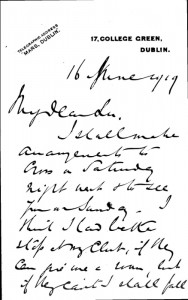 TELEGRAPHIC ADDRESS
MARS, DUBLIN.
17, COLLEGE GREEN,
DUBLIN.
16 June 1919
My dear
I shall make
arrangements to
Cross on Saturday
night next & to see
you on Sunday. I
think I had better
stop at my Club, if they
can give me a room, but
if they can't I shall